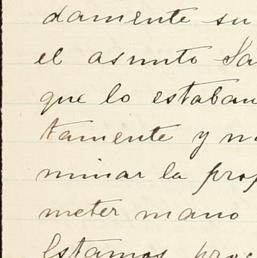 damente su
el asunto Sa
que lo estaban
tamente y no
minar la prop
meter mano
Estamos proc